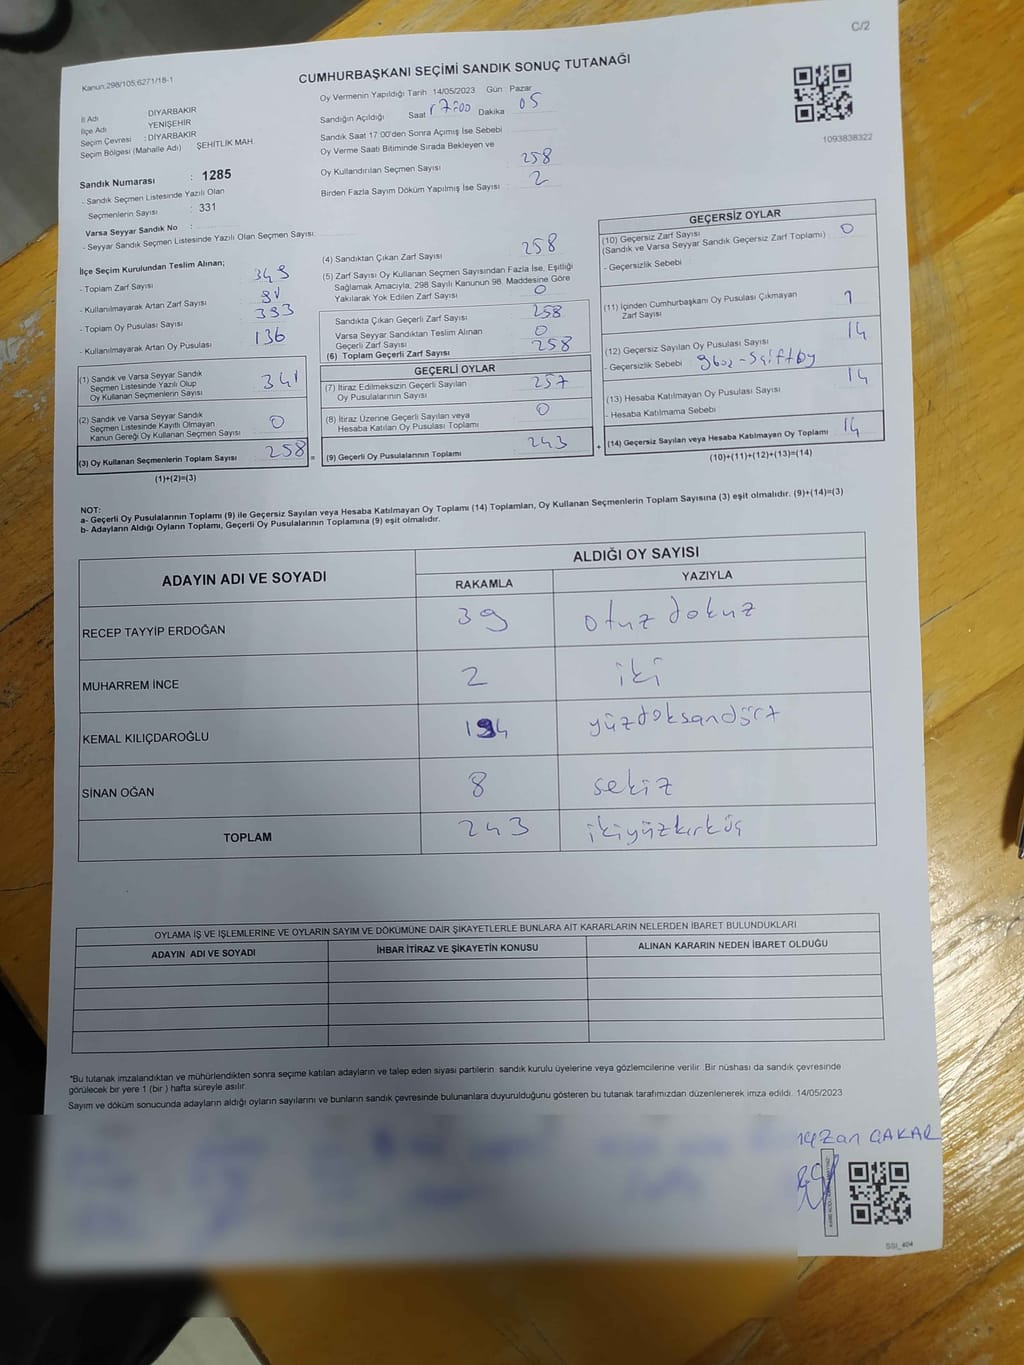 C/2
Kanun;298/105;6271/18-1
CUMHURBAŞKANI SEÇİMİ SANDIK SONUÇ TUTANAĞI
1093838322
İl Adı DİYARBAKIR
İlçe Adı YENİŞEHİR
Seçim Çevresi : DİYARBAKIR
Seçim Bölgesi (Mahalle Adı) ŞEHİTLİK MAH.
Sandık Numarası : 1285
- Sandık Seçmen Listesinde Yazılı Olan
Seçmenlerin Sayısı : 331
Varsa Seyyar Sandık No :
- Seyyar Sandık Seçmen Listesinde Yazılı Olan Seçmen Sayısı:
Oy Vermenin Yapıldığı Tarih 14/05/2023 Gün Pazar
Sandığın Açıldığı Saat 17:00 Dakika 05
Sandık Saat 17:00'den Sonra Açımış İse Sebebi
Oy Verme Saati Bitiminde Sırada Bekleyen ve
Oy Kullandırılan Seçmen Sayısı : 258
Birden Fazla Sayım Döküm Yapılmış İse Sayısı : 2
İlçe Seçim Kurulundan Teslim Alınan;
- Toplam Zarf Sayısı 349
- Kullanılmayarak Artan Zarf Sayısı
- Toplam Oy Pusulası Sayısı 393
- Kullanılmayarak Artan Oy Pusulası 136
(1) Sandık ve Varsa Seyyar Sandık
Seçmen Listesinde Yazılı Olup
Oy Kullanan Seçmenlerin Sayısı 341
(2) Sandık ve Varsa Seyyar Sandık
Seçmen Listesinde Kayıtlı Olmayan
Kanun Gereği Oy Kullanan Seçmen Sayısı 0
(3) Oy Kullanan Seçmenlerin Toplam Sayısı 258 =
(1)+(2)=(3)
(4) Sandıktan Çıkan Zarf Sayısı 258
(5) Zarf Sayısı Oy Kullanan Seçmen Sayısından Fazla İse, Eşitliği
Sağlamak Amacıyla, 298 Sayılı Kanunun 98. Maddesine Göre
Yakılarak Yok Edilen Zarf Sayısı 0
Sandıkta Çıkan Geçerli Zarf Sayısı 258
Varsa Seyyar Sandıktan Teslim Alınan
Geçerli Zarf Sayısı 0
(6) Toplam Geçerli Zarf Sayısı 258
GEÇERLİ OYLAR
(7) İtiraz Edilmeksizin Geçerli Sayılan
Oy Pusulalarının Sayısı 257
(8) İtiraz Üzerine Geçerli Sayılan veya
Hesaba Katılan Oy Pusulası Toplamı 0
(9) Geçerli Oy Pusulalarının Toplamı 243 +
GEÇERSİZ OYLAR
(10) Geçersiz Zarf Sayısı
(Sandık ve Varsa Seyyar Sandık Geçersiz Zarf Toplamı) 0
- Geçersizlik Sebebi :
(11) İçinden Cumhurbaşkanı Oy Pusulası Çıkmayan
Zarf Sayısı 1
(12) Geçersiz Sayılan Oy Pusulası Sayısı 14
- Geçersizlik Sebebi
(13) Hesaba Katılmayan Oy Pusulası Sayısı 14
- Hesaba Katılmama Sebebi
(14) Geçersiz Sayılan veya Hesaba Katılmayan Oy Toplamı 14
(10)+(11)+(12)+(13)=(14)
NOT:
a- Geçerli Oy Pusulalarının Toplamı (9) ile Geçersiz Sayılan veya Hesaba Katılmayan Oy Toplamı (14) Toplamları, Oy Kullanan Seçmenlerin Toplam Sayısına (3) eşit olmalıdır. (9)+(14)=(3)
b- Adayların Aldığı Oyların Toplamı, Geçerli Oy Pusulalarının Toplamına (9) eşit olmalıdır.
ADAYIN ADI VE SOYADI
ALDIĞI OY SAYISI
RAKAMLA YAZIYLA
RECEP TAYYİP ERDOĞAN 39 otuz dokuz
MUHARREM İNCE 2 iki
KEMAL KILIÇDAROĞLU 194 yüzdoksandört
SİNAN OĞAN 8 sekiz
TOPLAM 243 ikiyüzkırküç
OYLAMA İŞ VE İŞLEMLERİNE VE OYLARIN SAYIM VE DÖKÜMÜNE DAİR ŞİKAYETLERLE BUNLARA AİT KARARLARIN NELERDEN İBARET BULUNDUKLARI
ADAYIN ADI VE SOYADI İHBAR İTİRAZ VE ŞİKAYETİN KONUSU ALINAN KARARIN NEDEN İBARET OLDUĞU
*Bu tutanak imzalandıktan ve mühürlendikten sonra seçime katılan adayların ve talep eden siyasi partilerin sandık kurulu üyelerine veya gözlemcilerine verilir. Bir nüshası da sandık çevresinde
görülecek bir yere 1 (bir) hafta süreyle asılır.
Sayım ve döküm sonucunda adayların aldığı oyların sayılarını ve bunların sandık çevresinde bulunanlara duyurulduğunu gösteren bu tutanak tarafımızdan düzenlenerek imza edildi. 14/05/2023